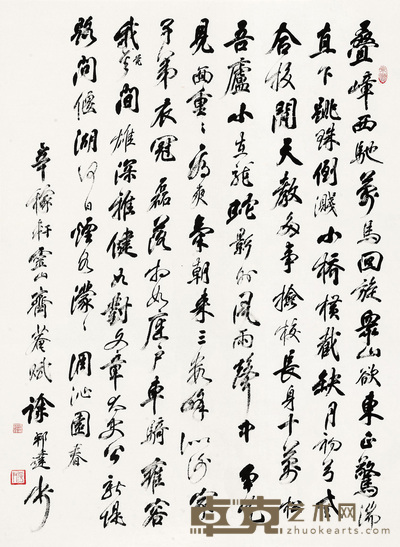 疊嶂西馳萬馬回旋眾山欲東正驚湍
直下跳珠倒濺小橋橫截缺月初弓老
合投閒天教多事檢校長身十萬松
吾廬小在龍蛇影外風雨聲中爭先
見面重々看爽氣朝來三數峰似謝家
子弟衣冠磊落相如庭戶車騎雍容
我覺其間雄深雅健如對文章太史公新堤
路問偃湖何日煙水濛々調沁園春
辛稼軒靈山齊菴賦 徐邦達書
卓克艺术网